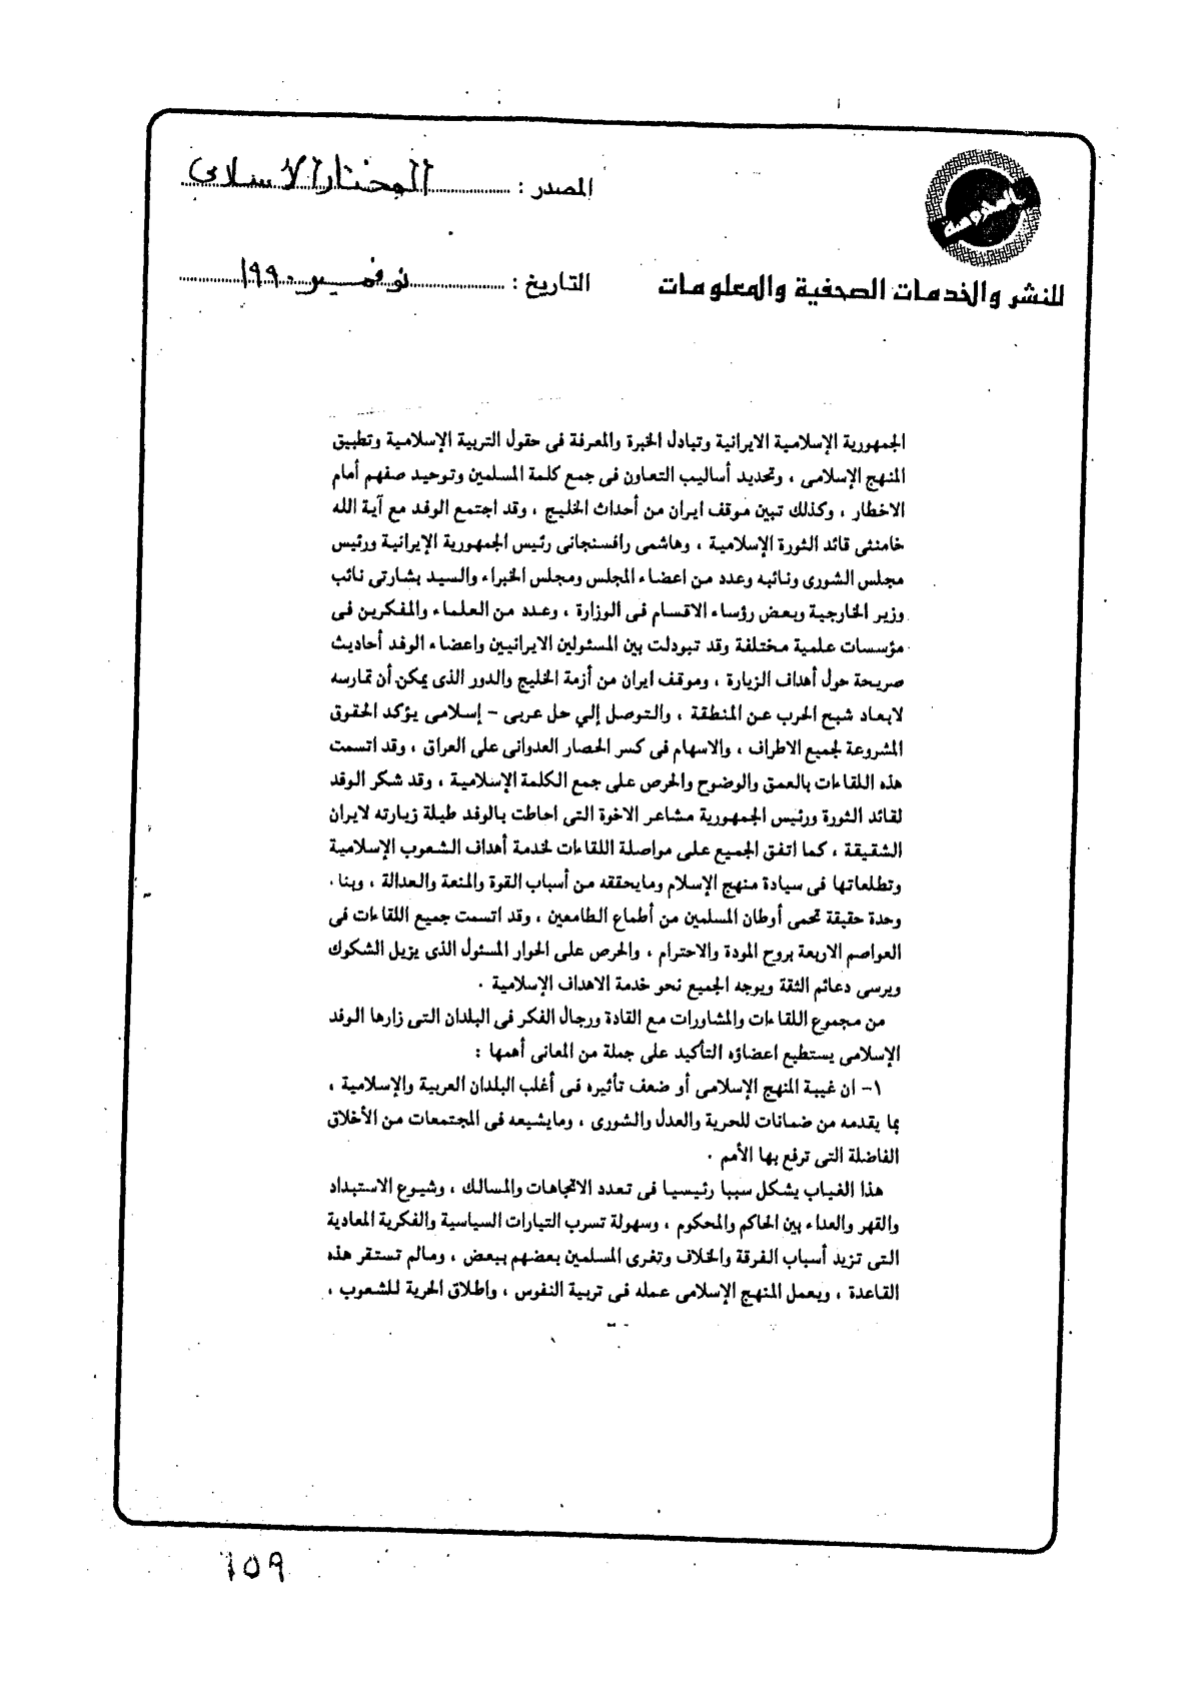 المصدر : المختار الاسلامى
للنشر والخدمات الصحفية والمعلومات
التاريخ : نوفمبر ١٩٩٠
الجمهورية الإسلامية الايرانية وتبادل الخبرة والمعرفة فى حقول التربية الإسلامية وتطبيق
المنهج الإسلامى ، وتحديد أساليب التعاون فى جمع كلمة المسلمين وتوحيد صفهم أمام
الاخطار ، وكذلك تبين موقف ايران من أحداث الخليج ، وقد اجتمع الوفد مع آية الله
خامنئى قائد الثورة الإسلامية ، وهاشمى رافسنجانى رئيس الجمهورية الإيرانية ورئيس
مجلس الشورى ونائبه وعدد من اعضاء المجلس ومجلس الخبراء والسيد بشارتى نائب
وزير الخارجية وبعض رؤساء الاقسام فى الوزارة ، وعدد من العلماء والمفكرين فى
مؤسسات علمية مختلفة وقد تبودلت بين المسئولين الايرانيين واعضاء الوفد أحاديث
صريحة حول أهداف الزيارة ، وموقف ايران من أزمة الخليج والدور الذى يمكن أن تمارسه
لابعاد شبح الحرب عن المنطقة ، والتوصل إلي حل عربى - إسلامى يؤكد الحقوق
المشروعة لجميع الاطراف ، والاسهام فى كسر الحصار العدوانى على العراق ، وقد اتسمت
هذه اللقاءات بالعمق والوضوح والحرص على جمع الكلمة الإسلامية ، وقد شكر الوفد
لقائد الثورة ورئيس الجمهورية مشاعر الاخوة التى احاطت بالوفد طيلة زيارته لايران
الشقيقة ، كما اتفق الجميع على مواصلة اللقاءات لخدمة أهداف الشعوب الإسلامية
وتطلعاتها فى سيادة منهج الإسلام ومايحققه من أسباب القوة والمنعة والعدالة ، وبناء
وحدة حقيقة تحمى أوطان المسلمين من أطماع الطامعين ، وقد اتسمت جميع اللقاءات فى
العواصم الاربعة بروح المودة والاحترام ، والحرص على الحوار المسئول الذى يزيل الشكوك
ويرسى دعائم الثقة ويوجه الجميع نحو خدمة الاهداف الإسلامية .
من مجموع اللقاءات والمشاورات مع القادة ورجال الفكر فى البلدان التى زارها الوفد
الإسلامى يستطيع اعضاؤه التأكيد على جملة من المعانى أهمها :
١- ان غيبة المنهج الإسلامى أو ضعف تأثيره فى أغلب البلدان العربية والإسلامية ،
بما يقدمه من ضمانات للحرية والعدل والشورى ، ومايشيعه فى المجتمعات من الأخلاق
الفاضلة التى ترفع بها الأمم .
هذا الغياب يشكل سببا رئيسيا فى تعدد الاتجاهات والمسالك ، وشيوع الاستبداد
والقهر والعداء بين الحاكم والمحكوم ، وسهولة تسرب التيارات السياسية والفكرية المعادية
التى تزيد أسباب الفرقة والخلاف وتغرى المسلمين بعضهم ببعض ، ومالم تستقر هذه
القاعدة ، ويعمل المنهج الإسلامى عمله فى تربية النفوس ، واطلاق الحرية للشعوب ،
٦٥٩